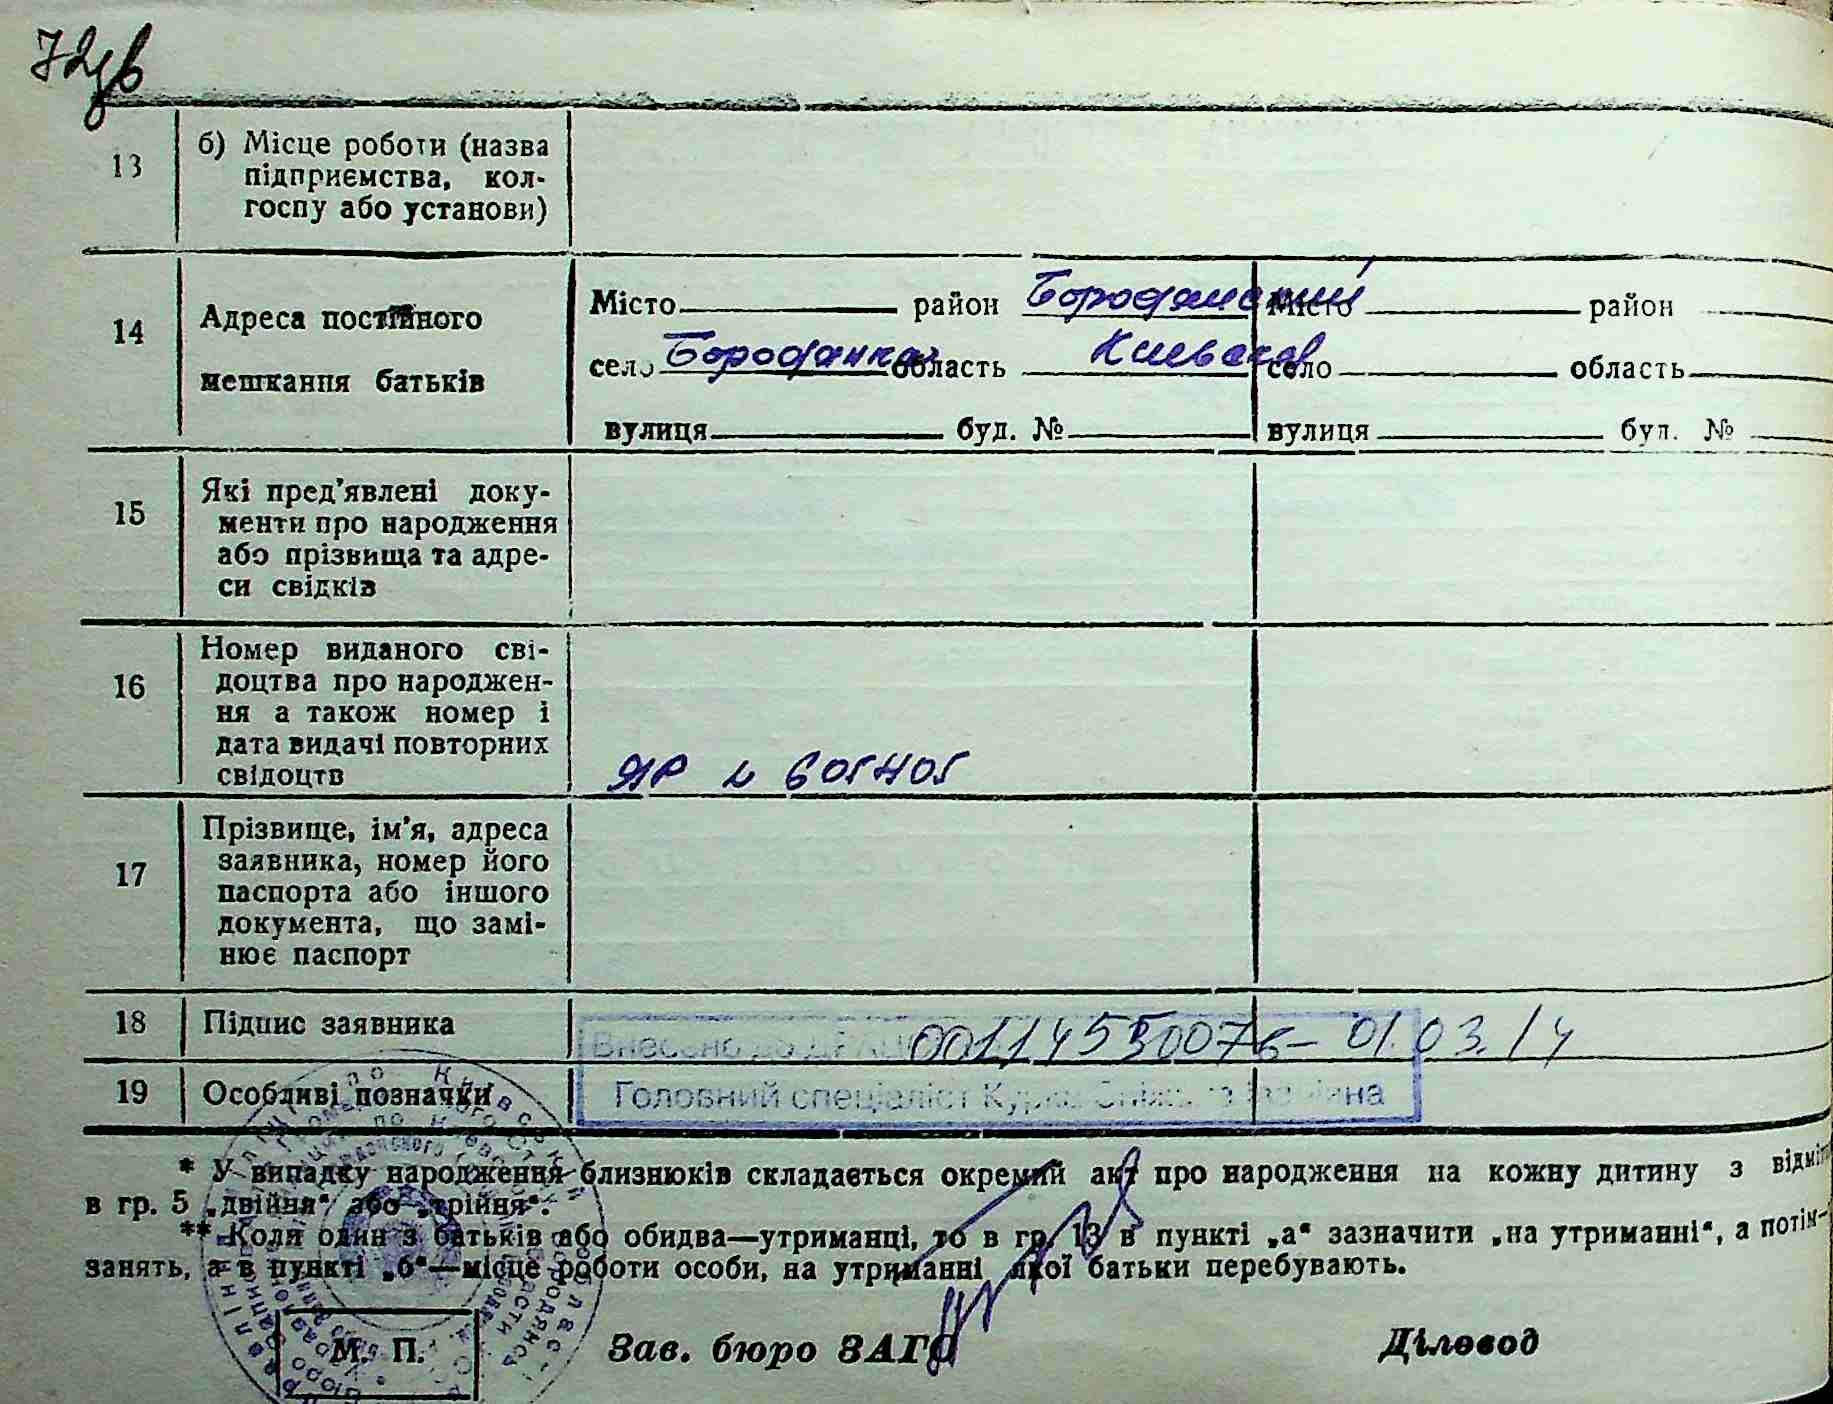 72
13
б) Місце роботи (назва
підприємства, кол-
госпу або установи)
14
Адреса постійного
мешкання батьків
Місто район Бородянський
село Бородянка область Київська
вулиця буд. №
Місто район
село область
вулиця буд. №
15
Які пред'явлені доку-
менти про народження
або прізвища та адре-
си свідків
16
Номер виданого сві-
доцтва про народжен-
ня а також номер і
дата видачі повторних
свідоцтв
ЯР № 605405
17
Прізвище, ім'я, адреса
заявника, номер його
паспорта або іншого
документа, що замі-
нює паспорт
18
Підпис заявника
Внесено до 00114530076 – 01.03.14
19
Особливі позначки
Головний спеціаліст
* У випадку народження близнюків складається окремий акт про народження на кожну дитину з відміт
в гр. 5 „двійня“ або „трійня“.
** Коли один з батьків або обидва—утриманці, то в гр. 13 в пункті „а“ зазначити „на утриманні“, а потім—
занять, а в пункті „б“—місце роботи особи, на утриманні якої батьки перебувають.
М. П.
Зав. бюро ЗАГС
Діловод